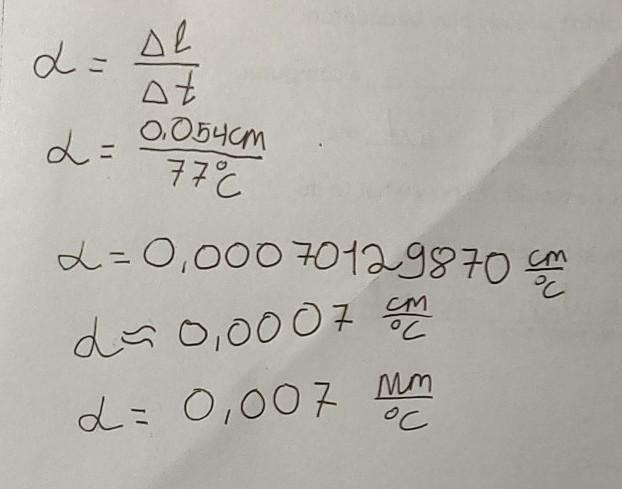 α = Δl/Δt
α = 0.054cm/77°C
α = 0,00070129870 cm/°C
α ≈ 0,0007 cm/°C
α = 0,007 mm/°C